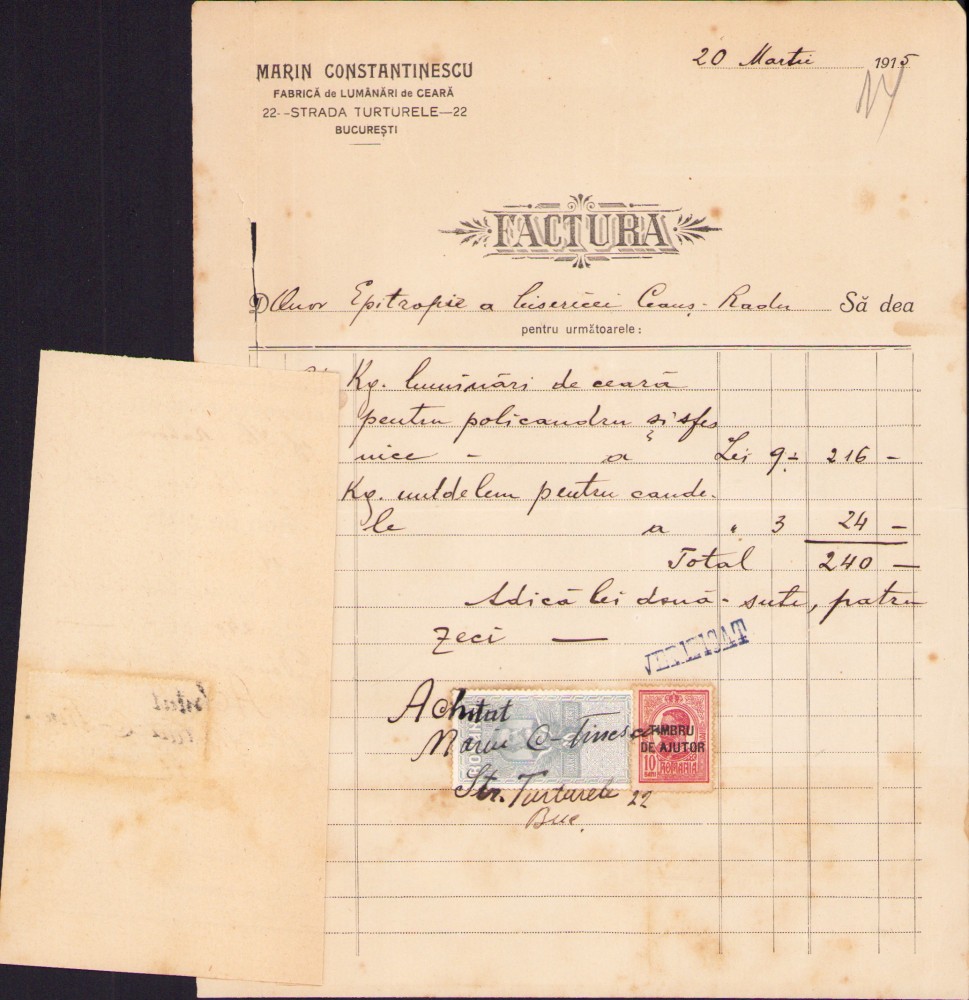 20 Martie 1915
14
MARIN CONSTANTINESCU
FABRICĂ de LUMÂNĂRI de CEARĂ
22--STRADA TURTURELE—22
BUCUREȘTI
FACTURA
D Onor Epitropie a bisericei Ceauș-Radu Să dea
pentru următoarele:
Kg. luminări de ceară
pentru policandru și sfeș
nice - a Lei 9 216 -
Kg. untdelem pentru cande-
le a " 3 24 -
Total 240 —
Adică lei două-sute, patru
zeci —
VERIFICAT
Achitat
Marin C-tinescu
Str. Turturele 22
Buc.
TIMBRU
DE AJUTOR
10
BANI
ROMANIA